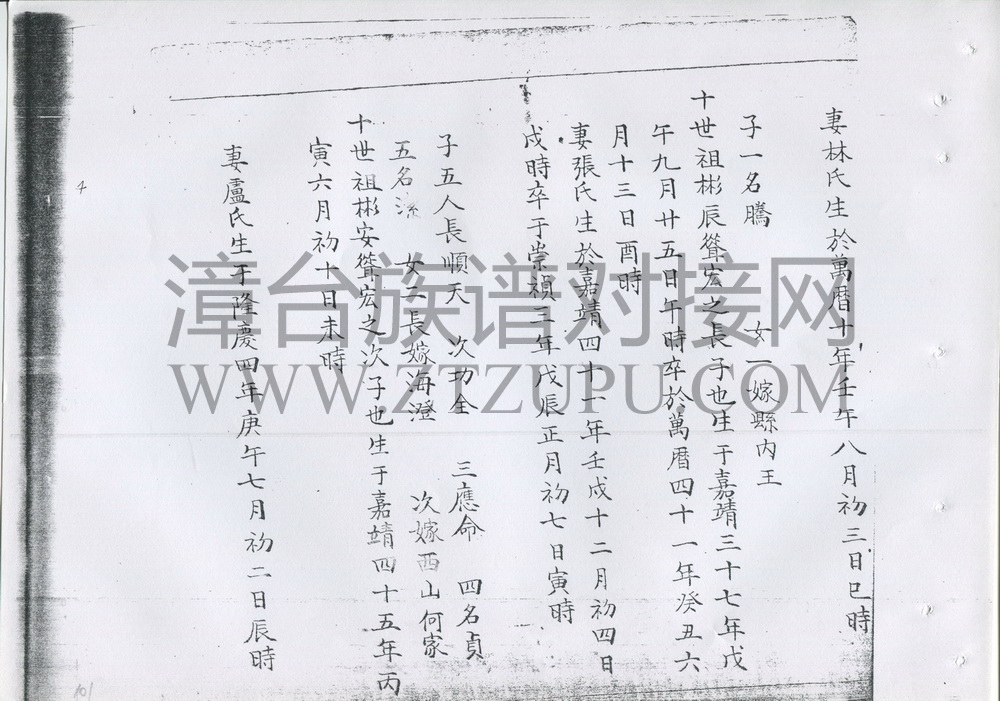 妻林氏生於萬曆十年壬午八月初三日巳時
子一名騰 女一嫁縣内王
十世祖彬辰聳宏之長子也生于嘉靖三十七年戊
午九月廿五日午時卒於萬曆四十一年癸丑六
月十三日酉時
妻張氏生於嘉靖四十一年壬戌十二月初四日
戌時卒于崇禎三年戊辰正月初七日寅時
子五人長順天 次功全 三應命 四名貞
五名 女二長嫁海澄 次嫁西山何家
十世祖彬安聳宏之次子也生于嘉靖四十五年丙
寅六月初十日未時
妻盧氏生于隆慶四年庚午七月初二日辰時
漳台族谱对接网
WWW.ZTZUPU.COM
101